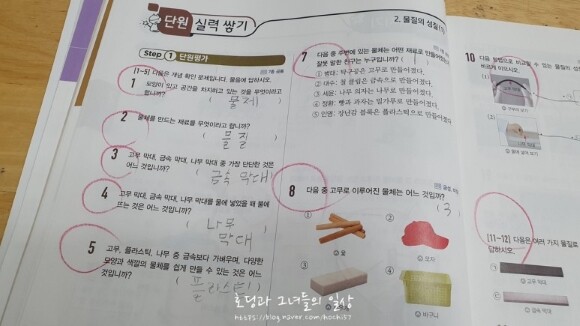 단원 실력 쌓기
2. 물질의 성질(1)
Step 1 단원평가
[1~5] 다음은 개념 확인 문제입니다. 물음에 답하시오.
1 모양이 있고 공간을 차지하고 있는 것을 무엇이라고
합니까?
( 물체 )
2 물체를 만드는 재료를 무엇이라고 합니까?
( 물질 )
3 고무 막대, 금속 막대, 나무 막대 중 가장 단단한 것은
어느 것입니까?
( 금속 막대 )
4 고무 막대, 금속 막대, 나무 막대를 물에 넣었을 때 물에
뜨는 것은 어느 것입니까?
( 나무
막대 )
5 고무, 플라스틱, 나무 중 금속보다 가벼우며, 다양한
모양과 색깔의 물체를 쉽게 만들 수 있는 것은 어느
것입니까?
( 플라스틱 )
7 다음 중 주변에 있는 물체는 어떤 재료로 만들어졌는지
잘못 말한 친구는 누구입니까? ( 1 )
① 병태: 탁구공은 고무로 만들어졌다.
② 대수: 철 클립은 금속으로 만들어졌다.
③ 세윤: 나무 의자는 나무로 만들어졌다.
④ 정환: 빵과 과자는 밀가루로 만들어졌다.
⑤ 인영: 장난감 블록은 플라스틱으로 만들어졌다.
8 다음 중 고무로 이루어진 물체는 어느 것입니까?
( 3 )
①
②
③
④
모자
바구니
10
바르게
[11~12] 다음은 여러 가지 물질
답하시오.
고무 막대
호댕과 그녀들의 일상
https://blog.naver.com/hochi57